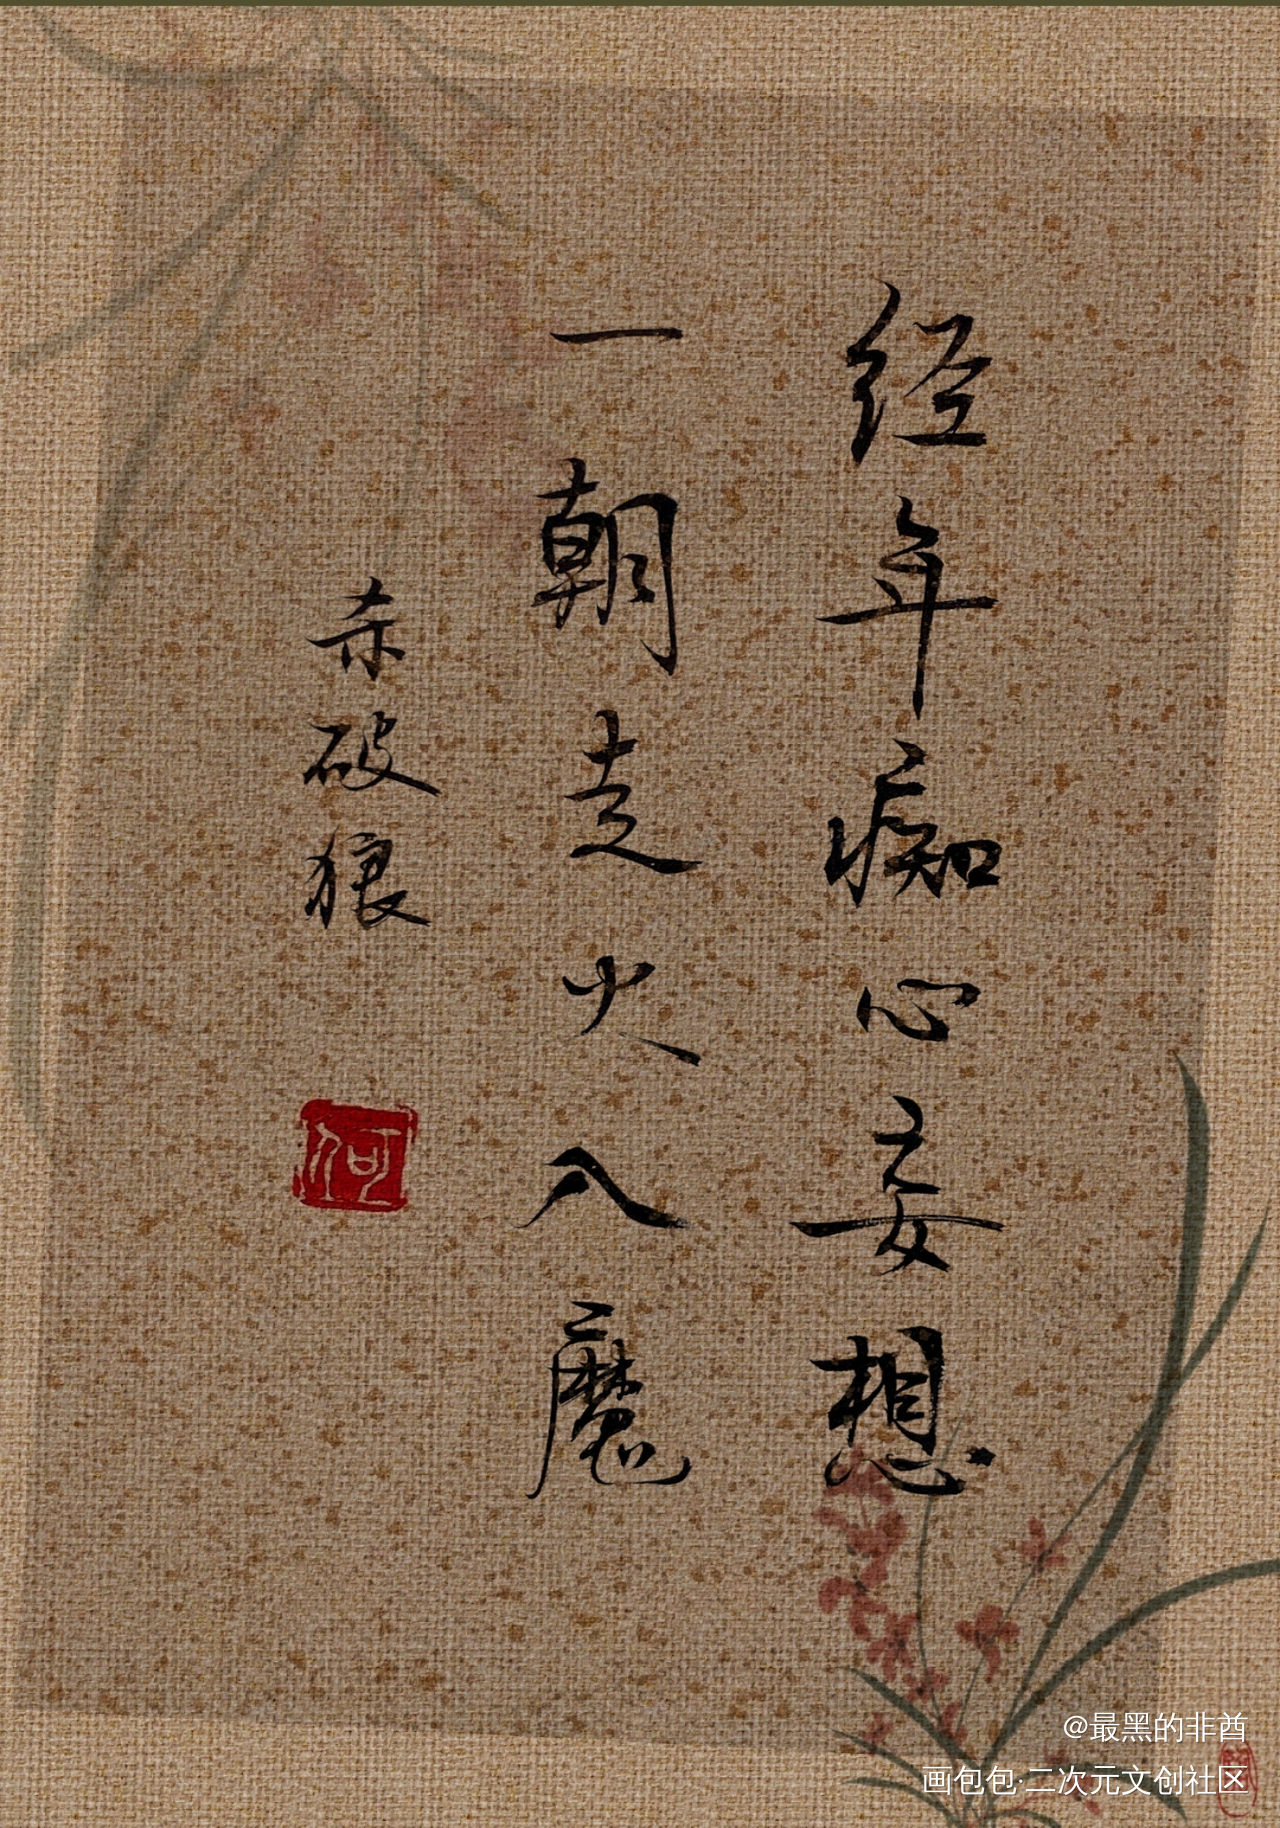 经年痴心妄想
一朝走火入魔
杀破狼
何
@最黑的非酋
画包包·二次元文创社区